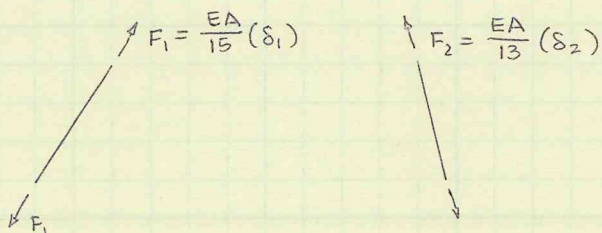 F₁ = EA/15 (δ₁)
F₂ = EA/13 (δ₂)
F₁